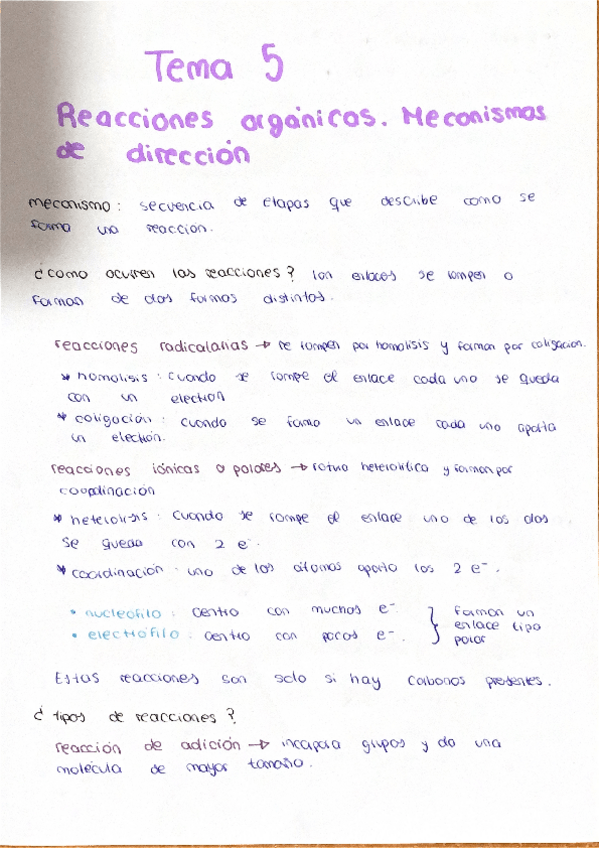 Tema 5
Reacciones orgánicas. Mecanismos
de dirección
mecanismo: secuencia de etapas que describe como se
forma una reacción.
¿como ocurren las reacciones? los enlaces se rompen o
forman de dos formas distintas.
reacciones radicalarias → se rompen por homolisis y forman por coligación.
* homolisis: cuando se rompe el enlace cada uno se queda
con un electron
* coligación: cuando se forma un enlace cada uno aporta
un electrón.
reacciones iónicas o polares → rotura heterolitica y forman por
coordinación
* heterolisis: cuando se rompe el enlace uno de los dos
se queda con 2 e⁻.
* coordinación: uno de los átomos aporta los 2 e⁻.
• nucleófilo: centro con muchos e⁻ } forman un
• electrófilo: centro con pocos e⁻. enlace tipo
polar
Estas reacciones son solo si hay carbonos presentes.
¿tipos de reacciones?
reacción de adición → incorpora grupos y da una
molécula de mayor tamaño.